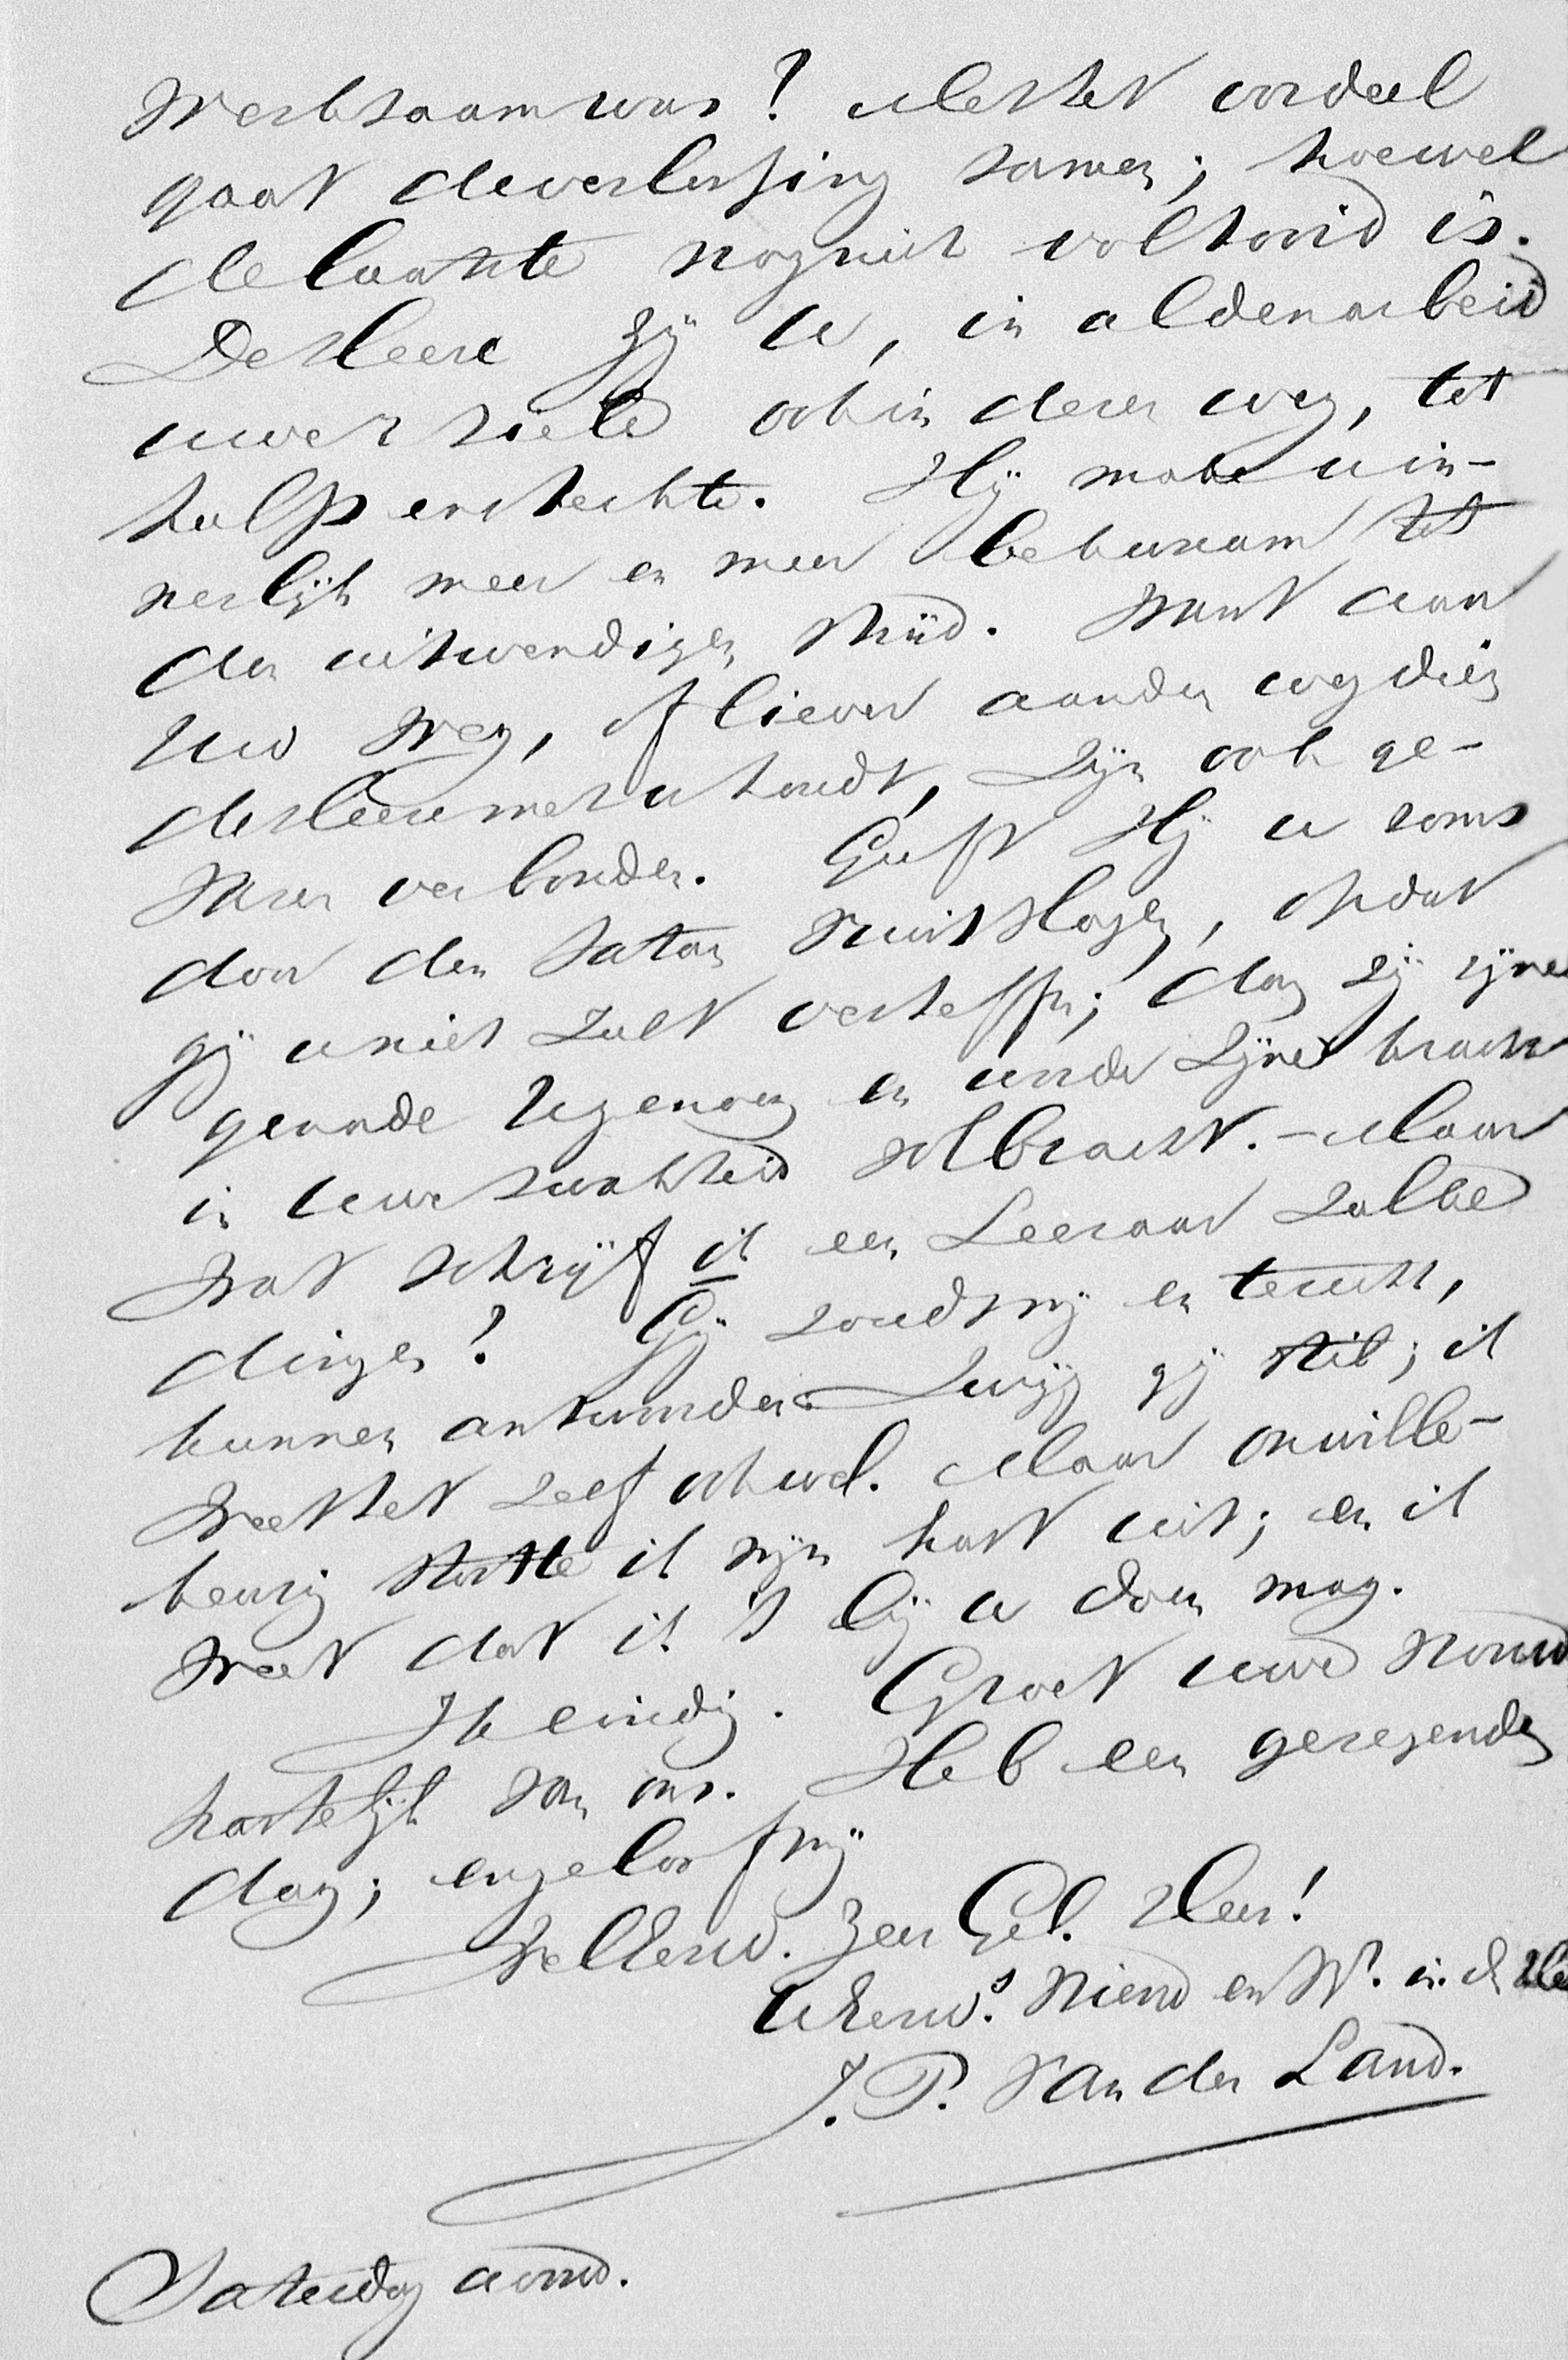 werkzaam was? Met het oordeel
gaat de verlossing samen; hoewel
de laatste nog niet voltooid is.
De Heere zij u, in al den arbeid
uwer ziele ook in dezen weg, tot
hulp en sterkte. Hij make u in-
nerlijk meer en meer bekwaam tot
den uitwendigen strijd. Want aan
Uw weg, of liever aan den weg dien
de Heere met u houdt, zijn ook ge-
varen verbonden. Geeft Hij u soms
door den Satan vuistslagen, opdat
gij u niet zult verheffen; dan zij zijne
genade U genoeg en worde Zijne kracht
in uwe zwakheid volbracht. – Maar
wat schrijf ik een Leeraar zulke
dingen? Gij zoudt mij en terecht,
kunnen antwoorden: Zwijg gij stil; ik
weet het zelf ook wel. Maar onwille-
keurig stortte ik mijn hart uit; en ik
weet dat ik 't bij u doen mag.
Ik eindig. Groet uwe vrouw
hartelijk van ons. Heb een gezegenden
dag; en geloof mij
WelEerw. Zeer Gel. Heer!
UwEerw.s vriend en br. in d Hee
J. P. Van der Land.
Saturdag avond.